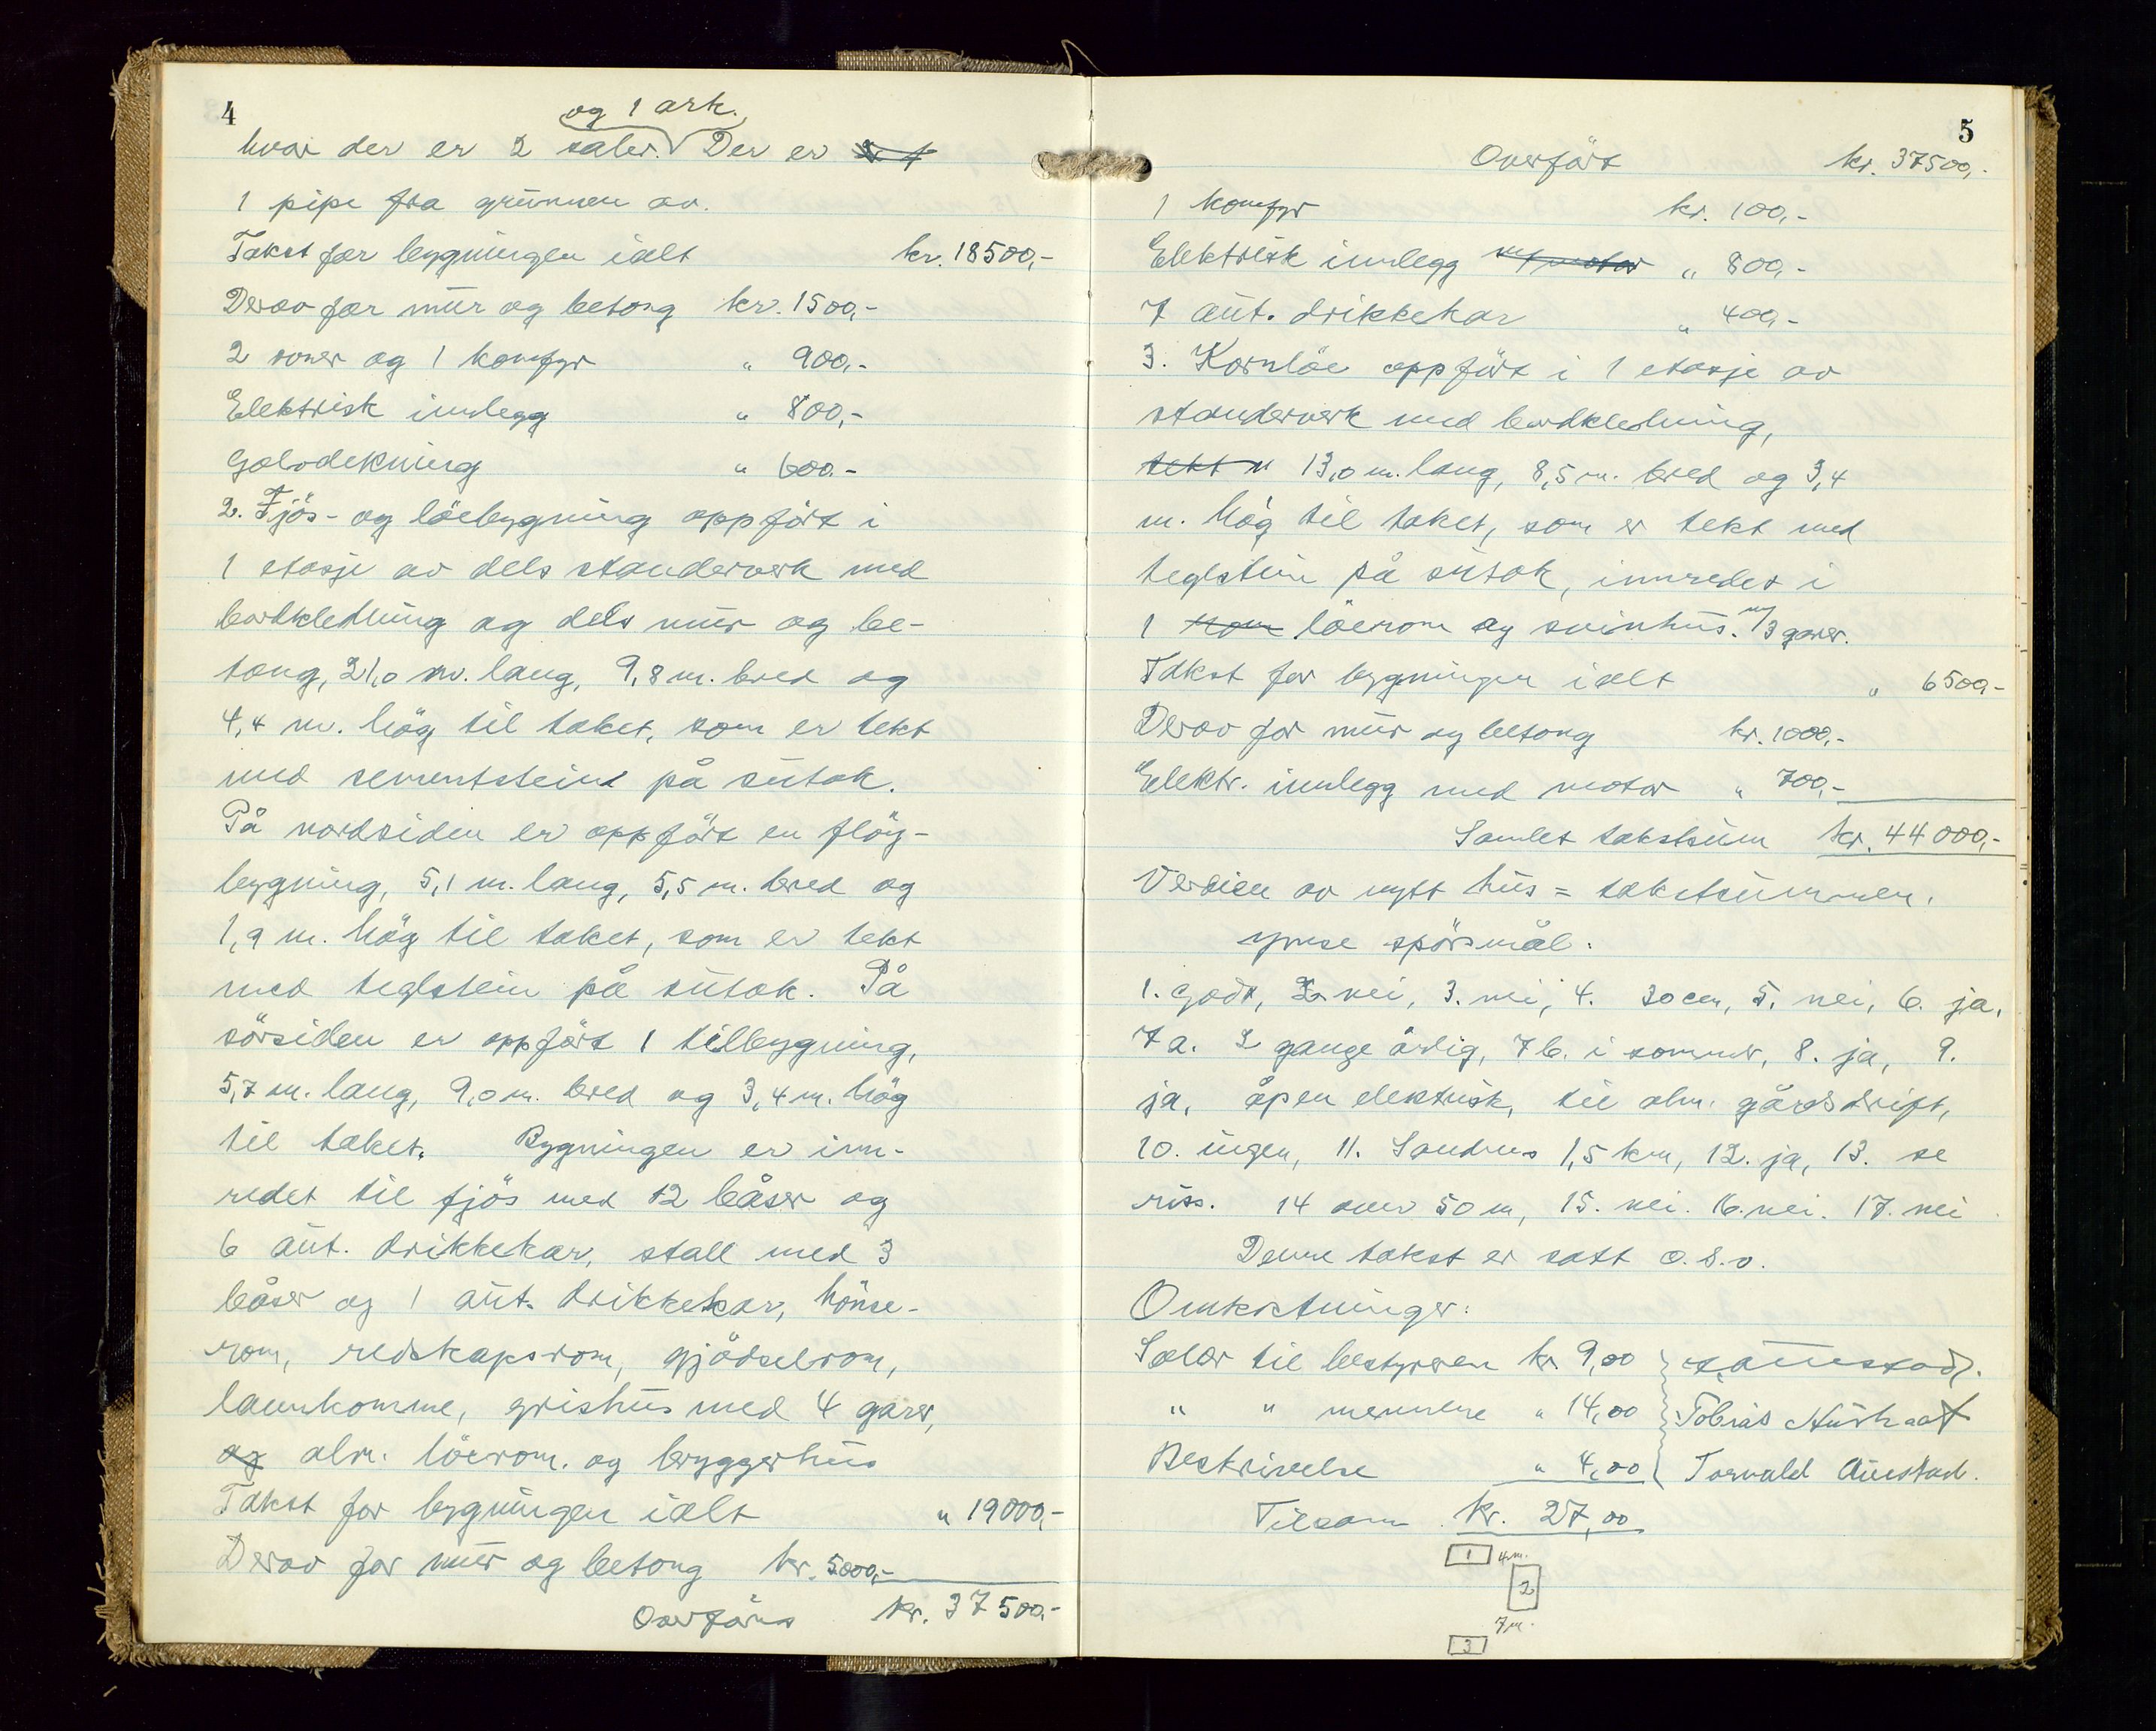 4
og 1 ark.
hvor der er 2 saler. Der er
1 pipe fra grunnen av.
Takst for bygningen ialt kr. 18500,-
Derav for mur og betong kr. 1500,-
2 ovner og 1 komfyr " 900,-
Elektrisk innlegg " 800,-
Golvdekning " 600.-
2. Fjös- og löebygning oppfört i
1 etasje av dels standerverk med
bordkledning og dels mur og be-
tong, 21,0 m. lang, 9,8 m. bred og
4,4 m. hög til taket, som er tekt
med sementstein på sutak.
På nordsiden er oppfört en flöy-
bygning, 5,1 m. lang, 5,5 m. bred og
1,9 m. hög til taket, som er tekt
med teglstein på sutak. På
sörsiden er oppfört 1 tilbygning,
5,7 m. lang, 9,0 m. bred og 3,4 m. hög
til taket. Bygningen er inn-
redet til fjös med 12 båser og
6 aut. drikkekar, stall med 3
båser og 1 aut. drikkekar, hönse-
rom, redskapsrom, gjödselrom,
lannkomme, grishus med 4 garer,
og alm. löerom. og bryggerhus
Takst for bygningen ialt " 19000,-
Derav for mur og betong kr. 5000,-
Overföres kr. 37500,-
5
Overfört kr. 37500,-
1 komfyr kr. 100,-
Elektrisk innlegg m/motor " 800,-
7 aut. drikkekar " 400,-
3. Kornlöe oppfört i 1 etasje av
standerverk med bordkledning,
tekt m 13,0 m. lang, 8,5 m. bred og 3,4
m. hög til taket, som er tekt med
teglstein på sutak, innredet i
1 rom löerom og svinhus. m/3 garer.
Takst for bygningen ialt " 6500,-
Derav for mur og betong kr. 1000,-
Elektr. innlegg med motor " 700,-
Samlet takstsum kr. 44000,-
Verdien av nytt hus = takstsummen.
Ymse spörsmål.
1. godt, 2. nei, 3. nei, 4. 30 cm, 5. nei, 6. ja,
7 a. 2 gange årlig, 7 b. i sommer, 8. ja, 9.
ja, åpen elektrisk, til alm. gårdsdrift,
10. ingen, 11. Sandnes 1,5 km, 12. ja, 13. se
riss. 14 over 50 m, 15. nei. 16. nei. 17. nei
Denne takst er satt o.s.v.
Omkostninger:
Salær til bestyreren kr. 9,00
" " mennene " 14,00 Tobias
Beskrivelse " 4,00 Torvald Austad.
Tilsam kr. 27,00
1 4 m.
2
7 m.
3